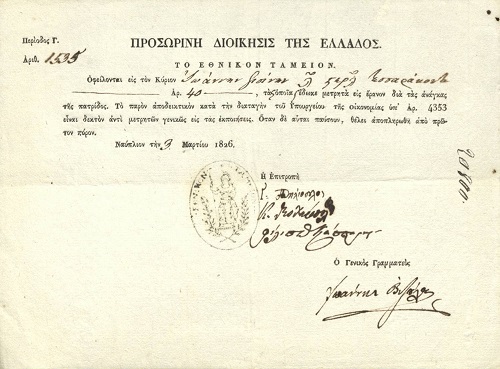 Περίοδος Γ.
Αριθ. 1535
ΠΡΟΣΩΡΙΝΗ ΔΙΟΙΚΗΣΙΣ ΤΗΣ ΕΛΛΑΔΟΣ.
ΤΟ ΕΘΝΙΚΟΝ ΤΑΜΕΙΟΝ.
Ὀφείλονται εἰς τὸν Κύριον Ἰωάννην
Αρ. 40 , τὰ ὁποῖα ἔδωκε μετρητὰ εἰς ἔρανον διὰ τὰς ἀνάγκας
τῆς πατρίδος. Τὸ παρὸν ἀποδεικτικὸν κατὰ τὴν διαταγὴν τοῦ Ὑπουργείου τῆς Οἰκονομίας ὑπ' Αρ. 4353
εἶναι δεκτὸν ἀντὶ μετρητῶν γενικῶς εἰς τὰς ἐκποιήσεις. Ὅταν δὲ αὗται παύσουν, θέλει ἀποπληρωθῆ ἀπὸ πρῶ-
τον πόρον.
Ναύπλιον τὴν 3 Μαρτίου 1826.
Ἡ Ἐπιτροπὴ
Ὁ Γενικὸς Γραμματεὺς
Ἰωάννης